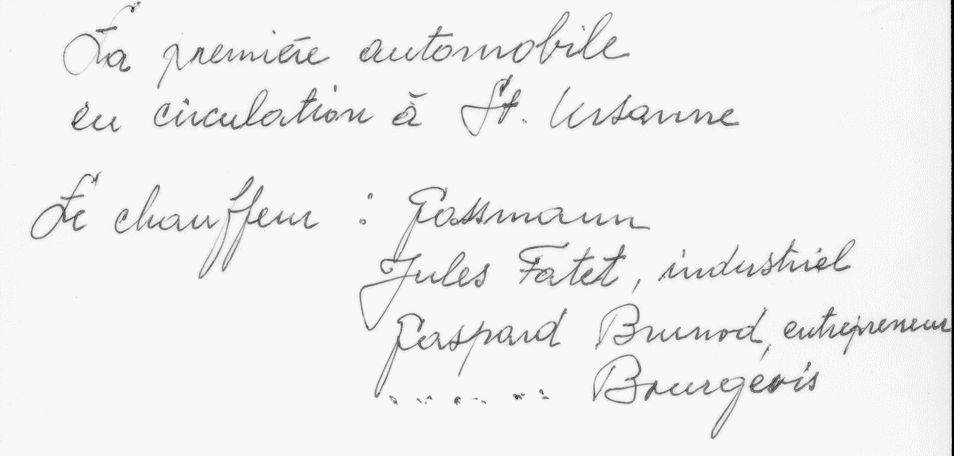 La première automobile
en circulation à St. Ursanne
Le chauffeur : Gassmann
Jules Fatet, industriel
Gaspard Brunod, entrepreneur
....... Bourgeois